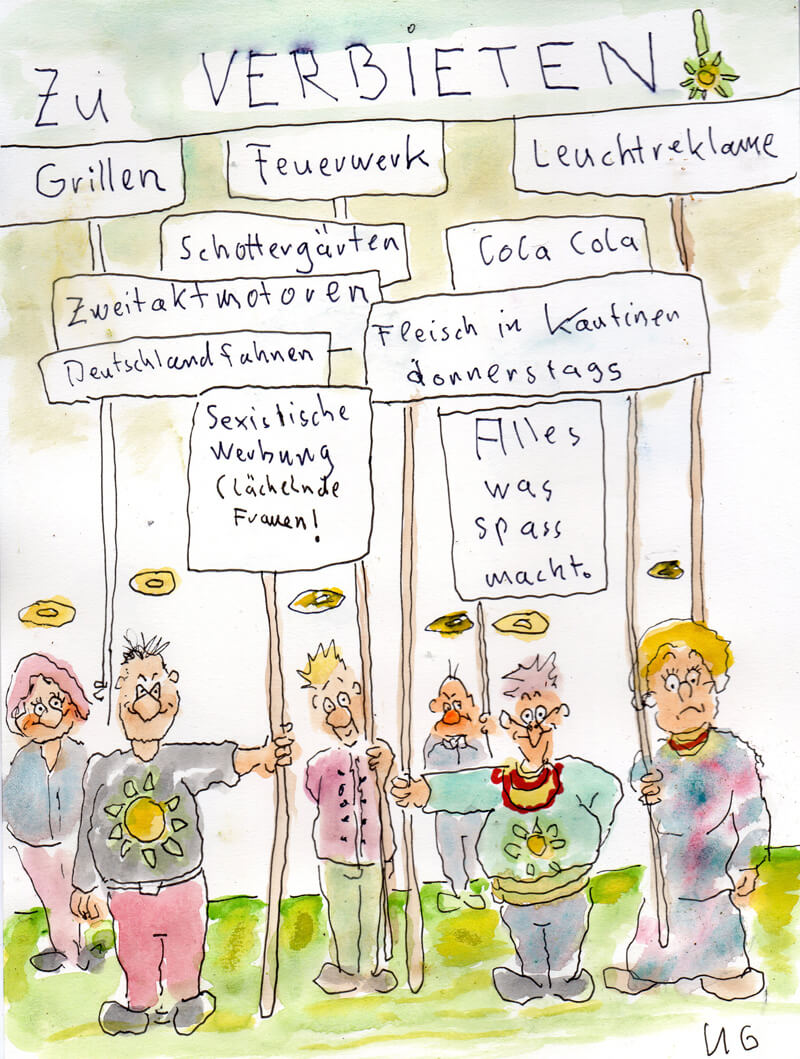 Zu VERBIETEN!
Grillen
Feuerwerk
Leuchtreklame
Schottergärten
Cola Cola
Zweitaktmotoren
Fleisch in Kantinen
donnerstags
Deutschlandfahnen
Sexistische
Werbung
(lächelnde
Frauen!
Alles
was
spass
macht.
HG